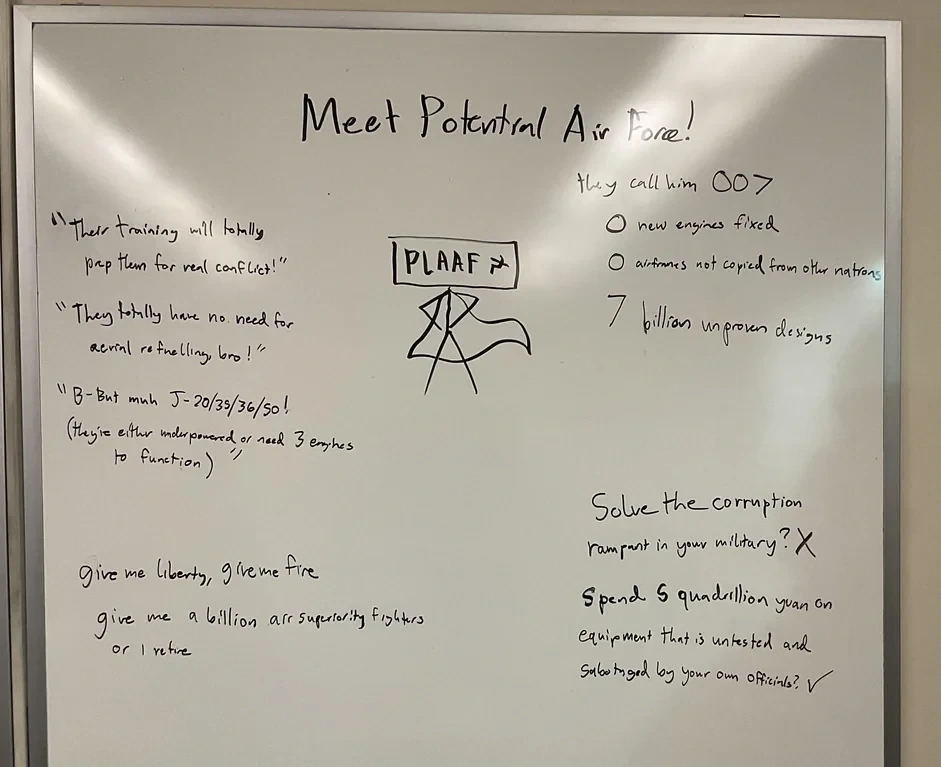 Meet Potential Air Force!
"Their training will totally
prep them for real conflict!"
"They totally have no need for
aerial refuelling, bro!"
"B-But muh J-20/35/36/50!
(they're either underpowered or need 3 engines
to function)"
give me liberty, give me fire
give me a billion air superiority fighters
or I retire
PLAAF
they call him 007
0 new engines fixed
0 airframes not copied from other nations
7 billion unproven designs
Solve the corruption
rampant in your military? X
Spend 5 quadrillion yuan on
equipment that is untested and
sabotaged by your own officials? ✓